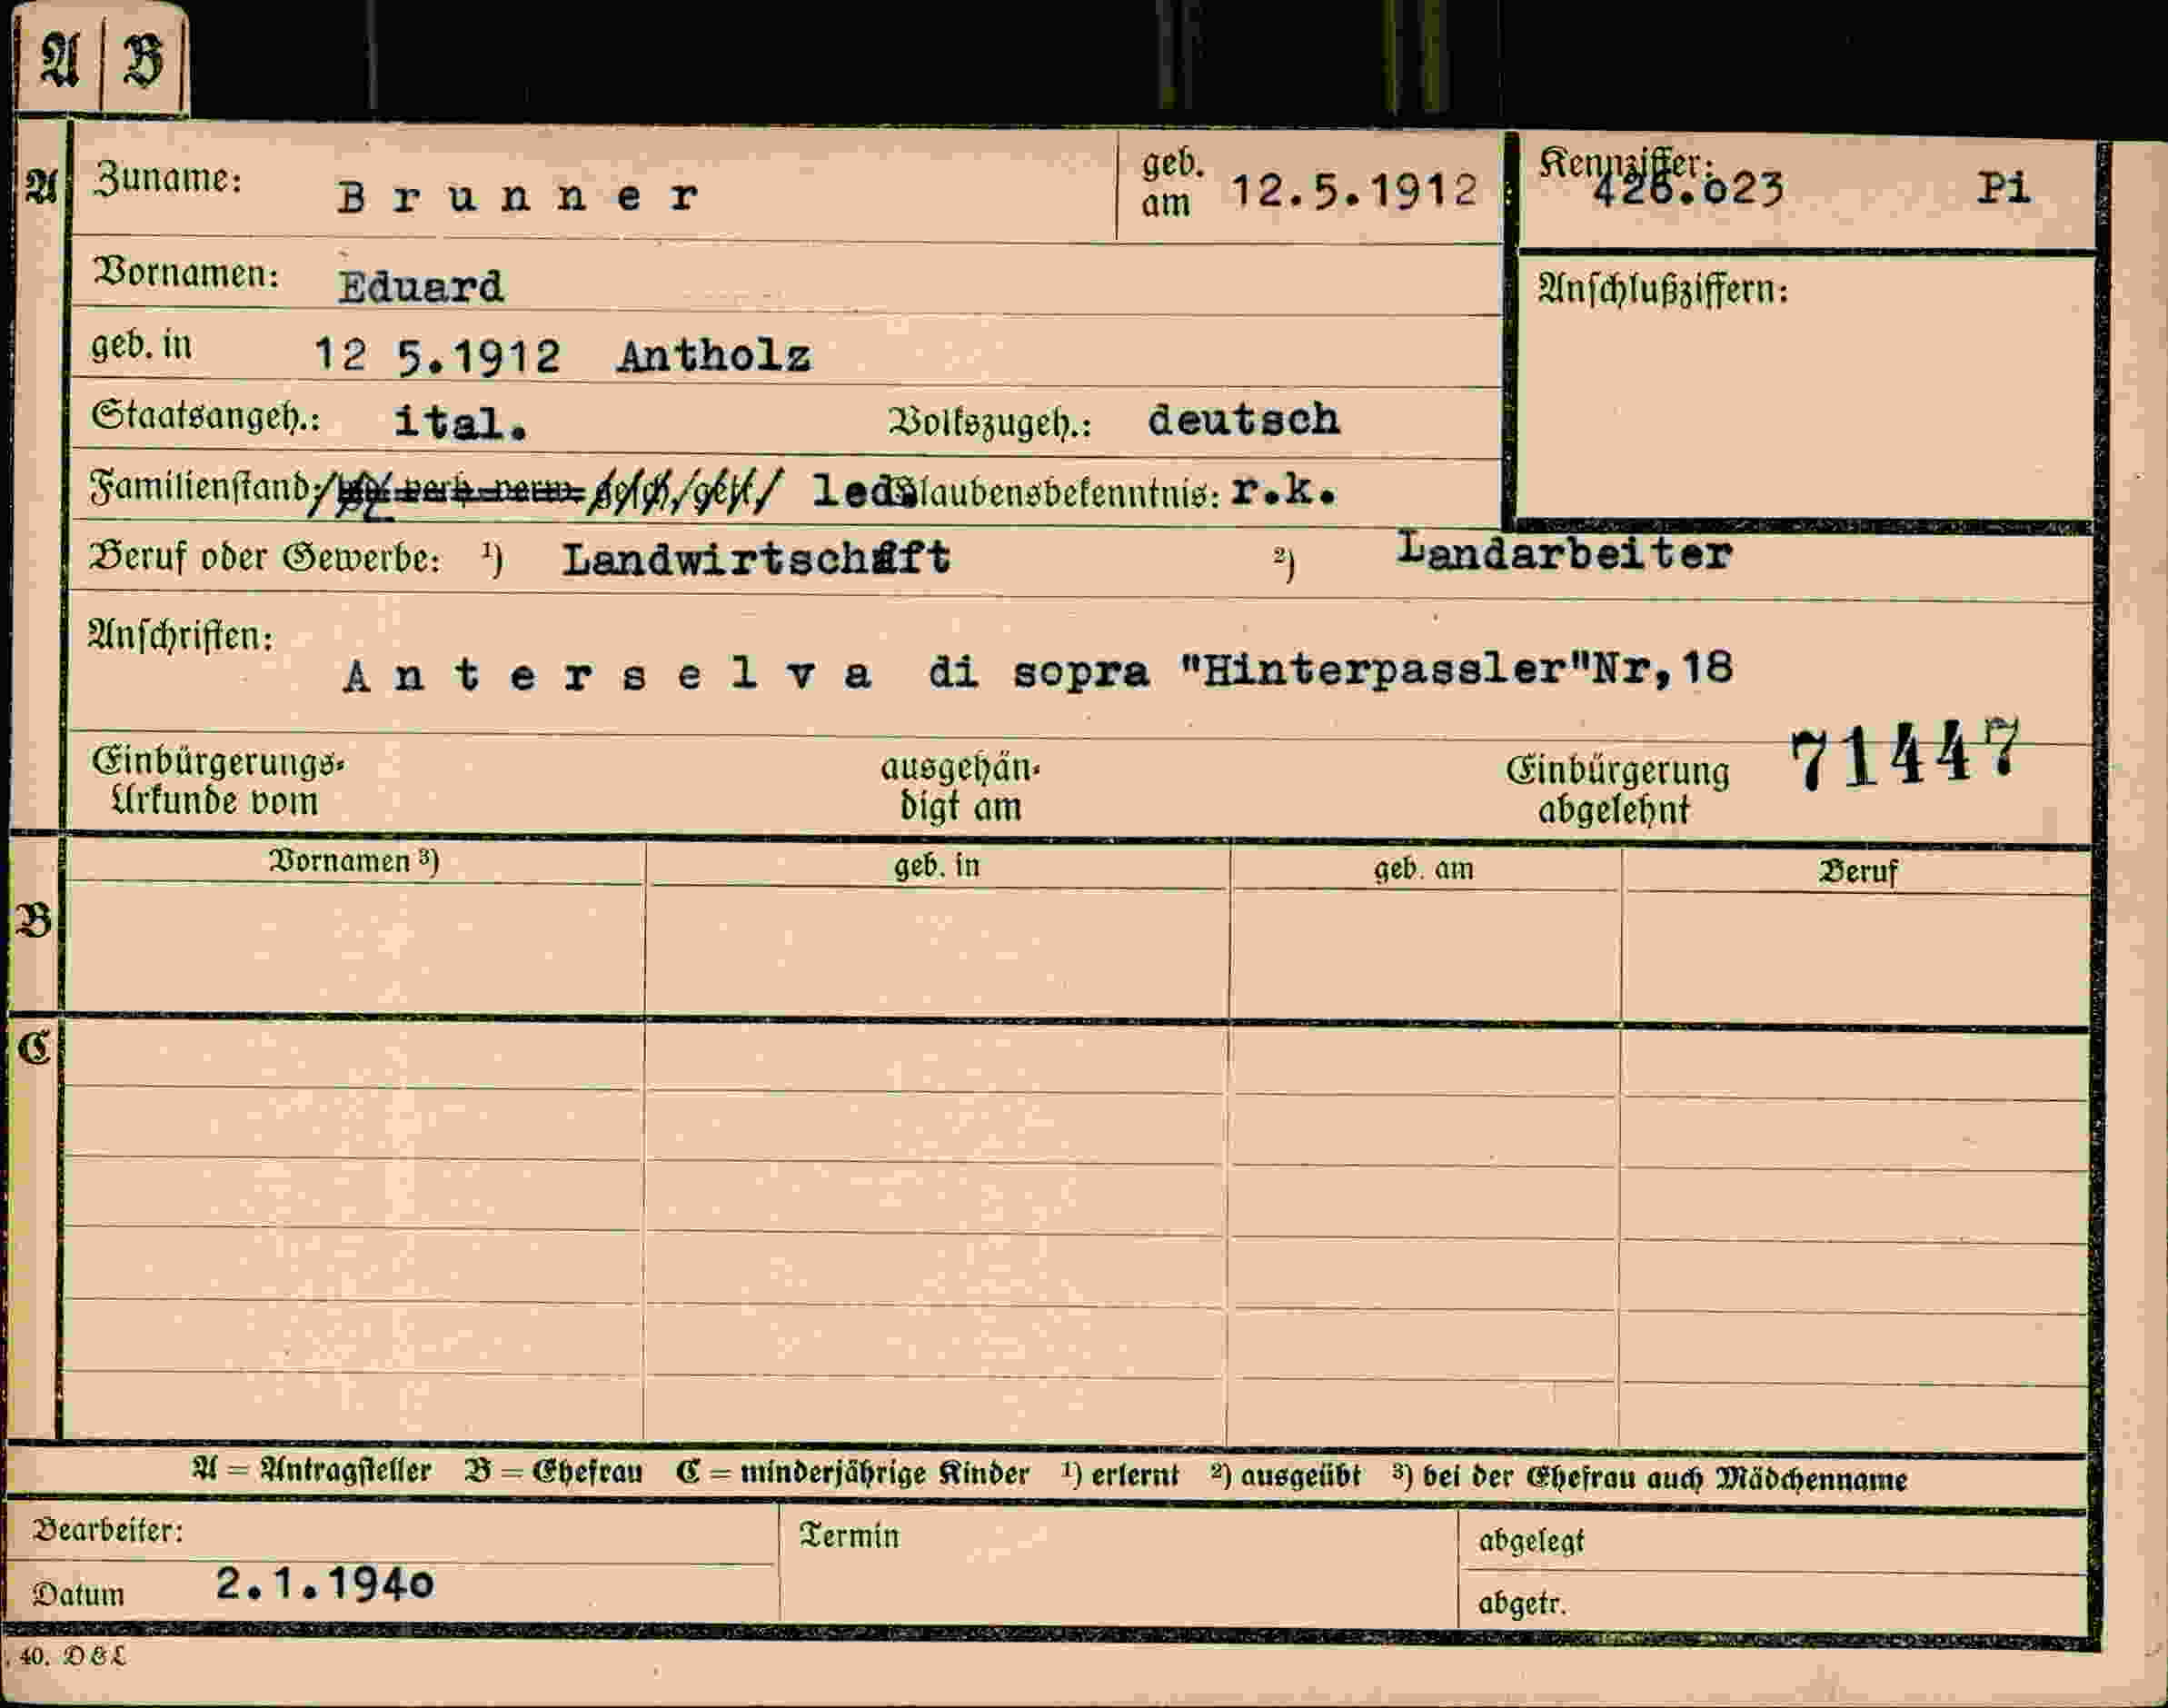 A B
A Zuname: Brunner geb. am 12.5.1912 Kennziffer: 426.023 Pi
Vornamen: Eduard Anschlußziffern:
geb. in 12 5.1912 Antholz
Staatsangeh.: ital. Volkszugeh.: deutsch
Familienstand: verh. verw. gesch. led Glaubensbekenntnis: r.k.
Beruf oder Gewerbe: 1) Landwirtschaft 2) Landarbeiter
Anschriften:
Anterselva di sopra "Hinterpassler"Nr,18
Einbürgerungs-Urkunde vom ausgehändigt am Einbürgerung abgelehnt 71447
Vornamen 3) geb. in geb. am Beruf
B
C
A = Antragsteller B = Ehefrau C = minderjährige Kinder 1) erlernt 2) ausgeübt 3) bei der Ehefrau auch Mädchenname
Bearbeiter: Termin abgelegt
Datum 2.1.1940 abgetr.
40. D & L